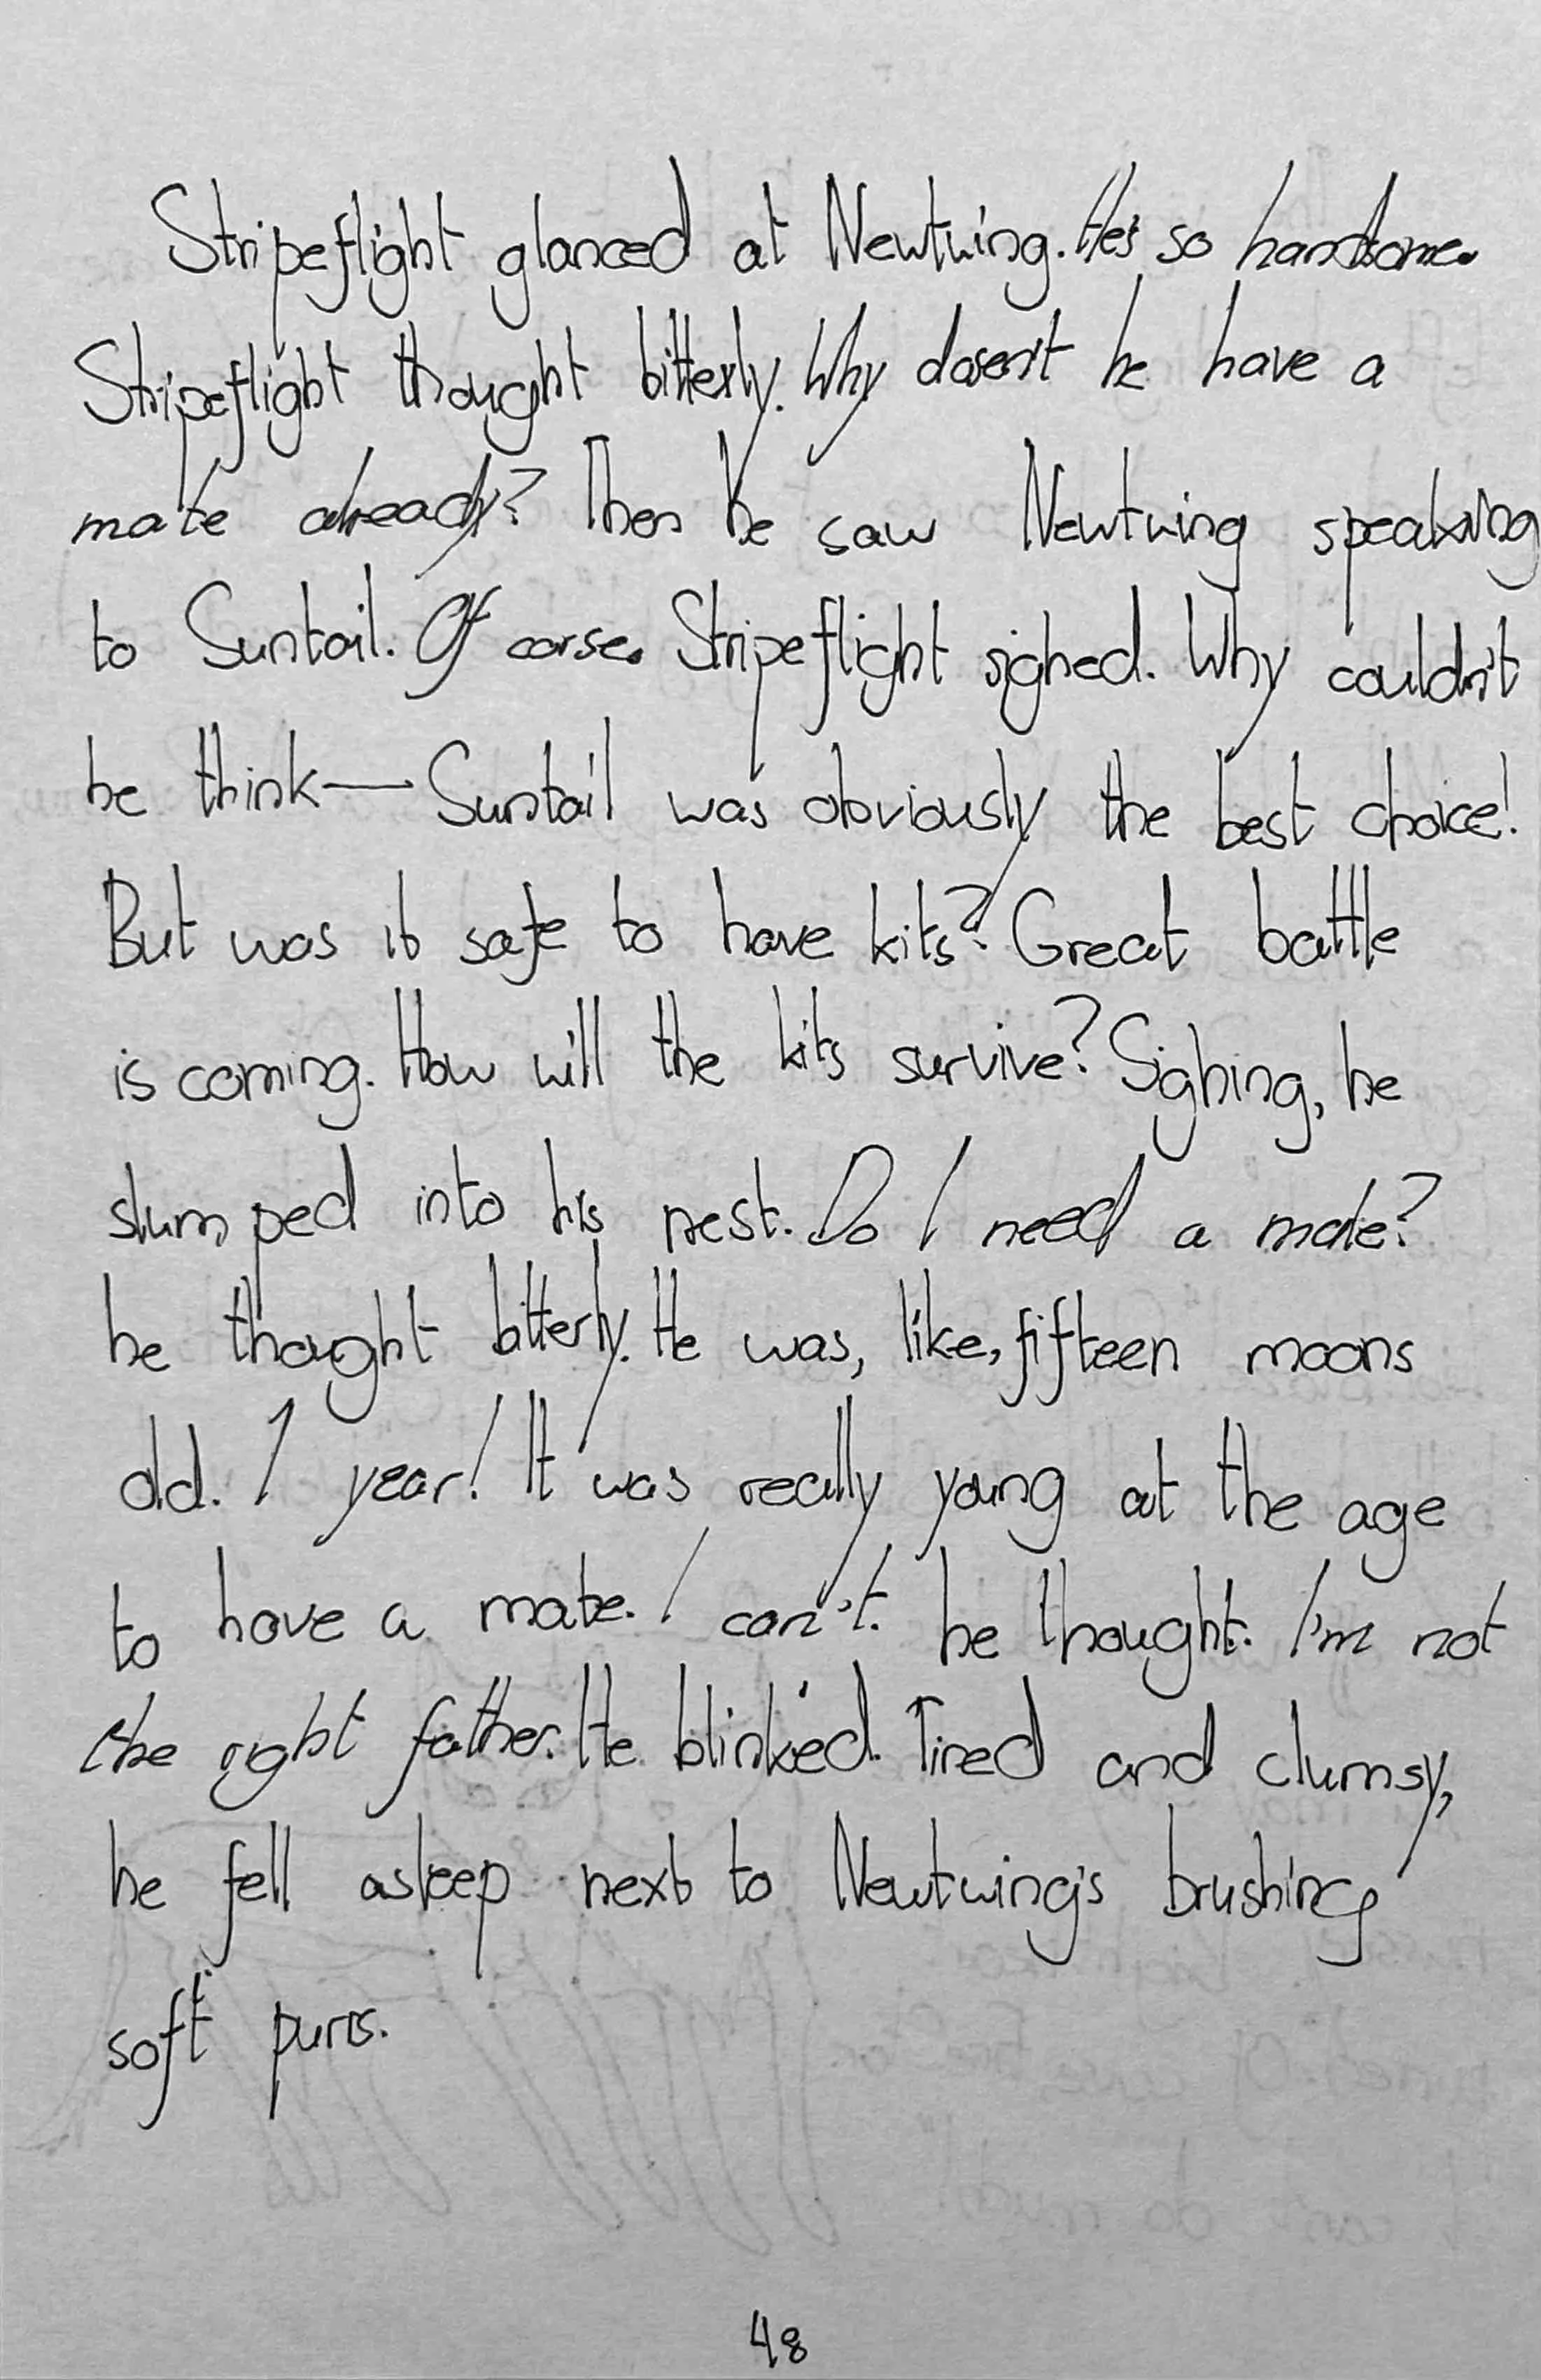 Stripeflight glanced at Newtwing. He's so handsome.
Stripeflight thought bitterly. Why dosen't he have a
mate already? Then he saw Newtwing speaking
to Suntail. Of corse. Stripeflight sighed. Why couldn't
he think—Suntail was obviously the best choice!
But was it safe to have kits? Great battle
is coming. How will the kits survive? Sighing, he
slumped into his nest. Do I need a mate?
he thought bitterly. He was, like, fifteen moons
old. 1 year! It was really young at the age
to have a mate. I can't. he thought. I'm not
the right father. He blinked. Tired and clumsy,
he fell asleep next to Newtwing's brushing
soft purrs.
48